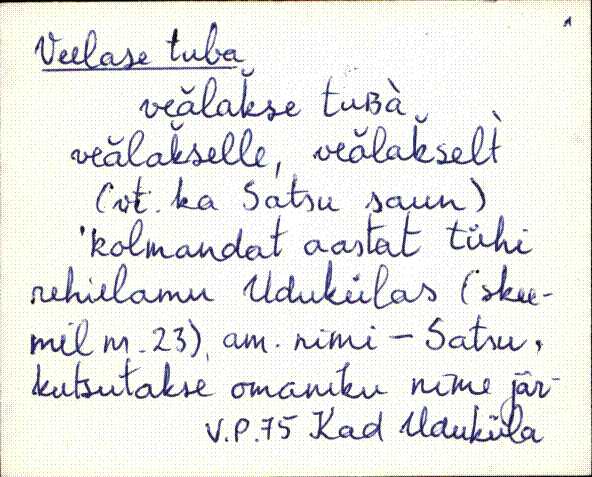 Veelase tuba
veălak̆se tuʙà
veălak̆selle, veălak̆selt̀
(vt. ka Satsu saun)
'kolmandat aastat tühi
rehielamu Udukülas (skee-
mil nr. 23), am. nimi – Satsu,
kutsutakse omaniku nime jär-
V.P.75 Kad Uduküla